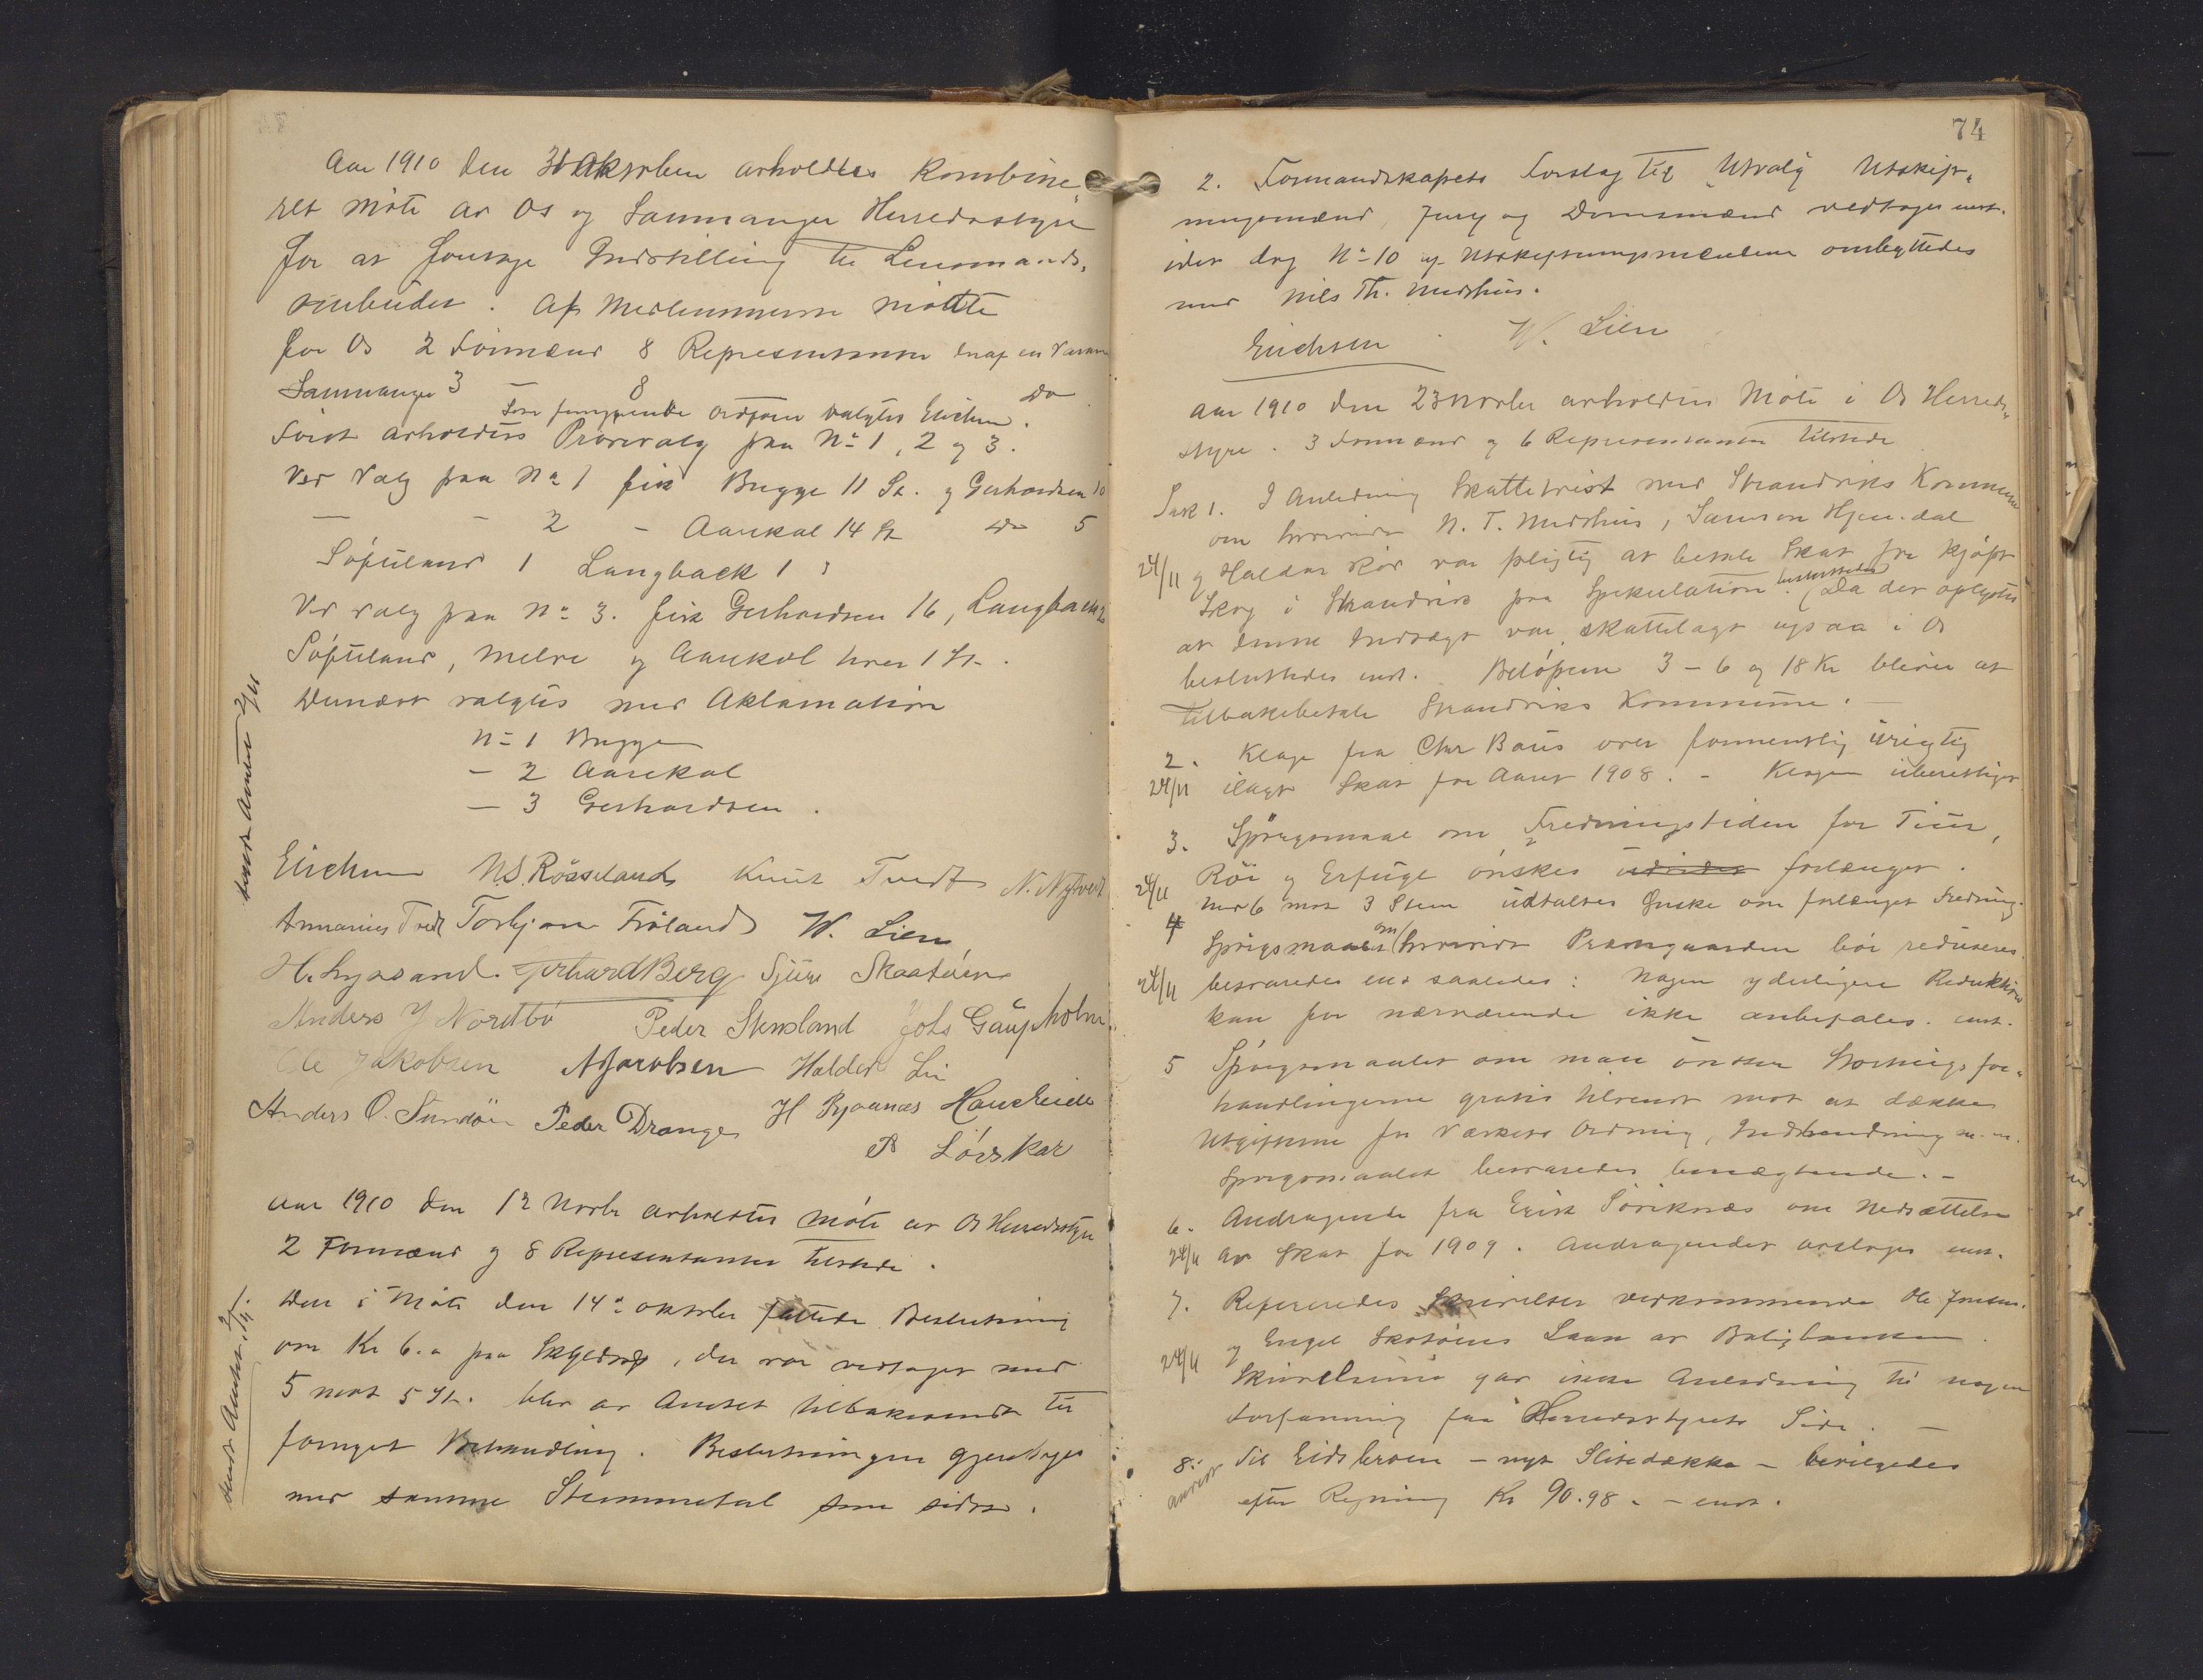 Aar 1910 den 31 Oktober avholdtes Kombine
ret møte av Os og Sammanger Herredsstyre
for at foretage Indstilling til Lensmands-
ombudet. Af Medlemmerne møtte
for Os 2 Formænd 8 Representanter deraf en Varam
Samnanger 3 — 8 Do
Som fungerende Ordfører valgtes Erichsen.
Først avholdtes Prøvevalg paa No 1, 2 og 3.
Ved Valg paa No 1 fik Brygge 11 St. og Gerhardsen 10
— - 2 - Aarekol 14 St Do 5
Søfteland 1 Langback 1
Ved valg paa No 3. fik Gerhardsen 16, Langback 2
Søfteland, Melve og Aarekol hver 1 St.
Dernæst valgtes med Aklamation
No 1 Brygge
— 2 Aarekol
— 3 Gerhardsen.
sendt Amtet 2/11
Erichsen N.S. Røsseland Knut Tvedt N. Nytvedt
Ananias Tvedt Torbjørn Frøland W. Lien
H. Lyssand. Gerhard Berg Sjur Skaatun
Anders J Nordbø Peder Stensland Johs Gaupholm
Ole Jakobsen A Jacobsen Haldor Lie
Anders O. Sundøen Peder Drange H Bjånæs Haugseide
P Løvskar
Aar 1910 den 12 Novbr avholdtes Møte av Os Herredsstyre
2 Formænd og 8 Representanter tilstede.
Den i Møte den 14de oktober fattede Beslutning
om Kr 6.- paa Skyldmk, der var vedtaget med
5 mot 5 St. blev av Amtet tilbakesendt til
fornyet Behandling. Beslutningen gjentoges
med samme Stemmetal som sidst.
sendt Amtet
74
2. Formandskapets Forslag til Utvalg Utskift-
ningsmænd, Jury og Domsmænd vedtoges enst.
idet dog No 10 av Utskiftningsmændene ombyttedes
med Nils Th. Midthus.
Erichsen W. Lien
Aar 1910 den 23 Novbr avholdtes Møte i Os Herreds-
styre. 3 Formænd og 6 Representanter tilstede
Sak 1. I Anledning Skattetvist med Strandviks Kommune
om hvorvidt N. T. Midthus, Samson Hjelledal
24/11 og Haldor Røe var pligtig at betale Skat for kjøpt
Skog i Strandvik paa Spekulation besluttedes. (Da der oplystes
at denne Indtægt var skattelagt ogsaa i Os
besluttedes enst. Beløpene 3 - 6 og 18 Kr bliver at
tilbakebetale Strandviks Kommune. —
2. Klage fra Chr Baus over formentlig urigtig
24/11 ilagt Skat for Aaret 1908. - Klagen uberettiget
3. Spørgsmaal om Fredningstiden for Tiur,
Røi og Erfugl ønskes forlænget.
24/11 Med 6 mot 3 Stem. udtaltes Ønske om forlænget Fredning.
4 Spørgsmaalet om hvorvidt Præstegaarden bør reduseres
24/11 besvaredes enst saaledes: Nogen yderligere Reduktion
kan for nærværende ikke anbefales. enst.
5 Spørgsmaalet om man ønsker Stortings for-
handlingerne gratis tilsendt mot at dække
Utgifterne for Værkets Ordning, Indbinding m.m.
Spørgsmaalet besvaredes benægtende. -
6. Andragende fra Erik Søviknæs om Nedsættelse
24/11 av Skat for 1909. Andragendet avsloges enst.
7. Refereredes Skrivelser vedkommende Ole Jensen
og Engel Skatuns Laan av Boligbanken.
24/11 Skrivelserne gav ikke Anledning til nogen
Forføining fra Herredsstyrets Side. —
8. Til Eidsbroen - nyt Slitedække - bevilgedes
anvist
efter Regning Kr 90.98. - enst.